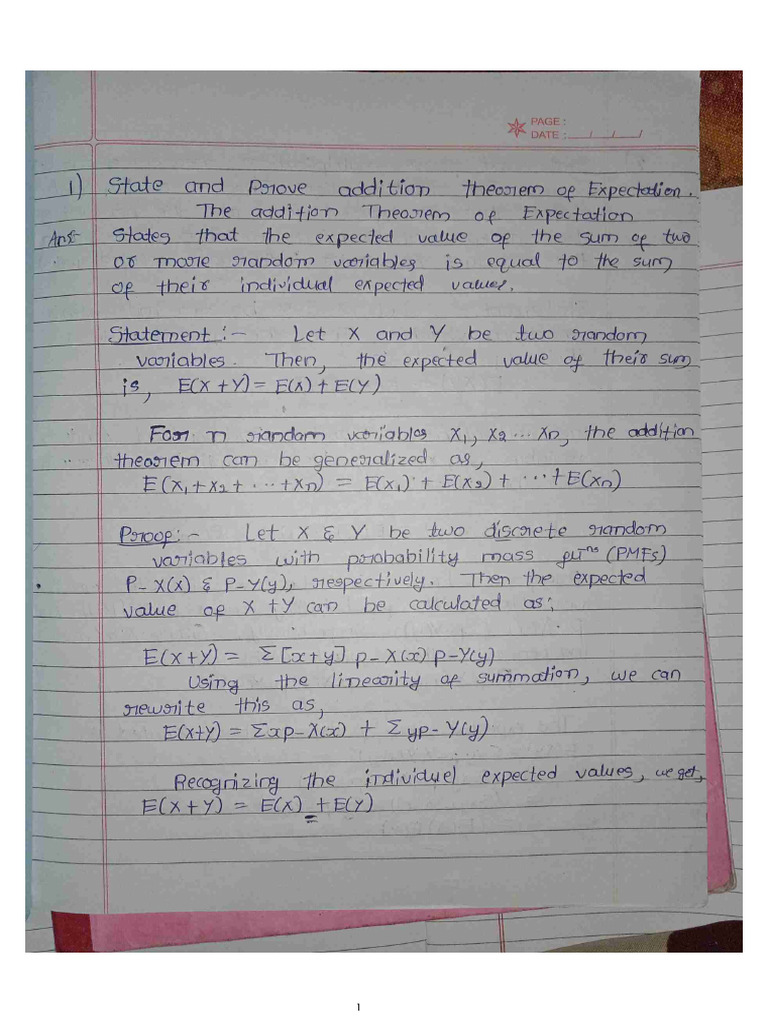 PAGE :
DATE : / / /
1) State and Prove addition theorem of Expectation.
The addition Theorem of Expectation
Ans- States that the expected value of the sum of two
or more random variables is equal to the sum
of their individual expected values.
Statement :- Let X and Y be two random
variables. Then, the expected value of their sum
is, E(X + Y) = E(X) + E(Y)
For n random variables X1, X2 ... Xn, the addition
theorem can be generalized as,
E(X1 + X2 + ... + Xn) = E(X1) + E(X2) + ... + E(Xn)
Proof :- Let X & Y be two discrete random
variables with probability mass (PMFs)
P-X(x) & P-Y(y), respectively. Then the expected
value of X + Y can be calculated as:
E(X+Y) = Σ[x+y] p-X(x) p-Y(y)
Using the linearity of summation, we can
rewrite this as,
E(X+Y) = Σxp-X(x) + Σyp-Y(y)
Recognizing the individuel expected values, we get,
E(X + Y) = E(X) + E(Y)
1